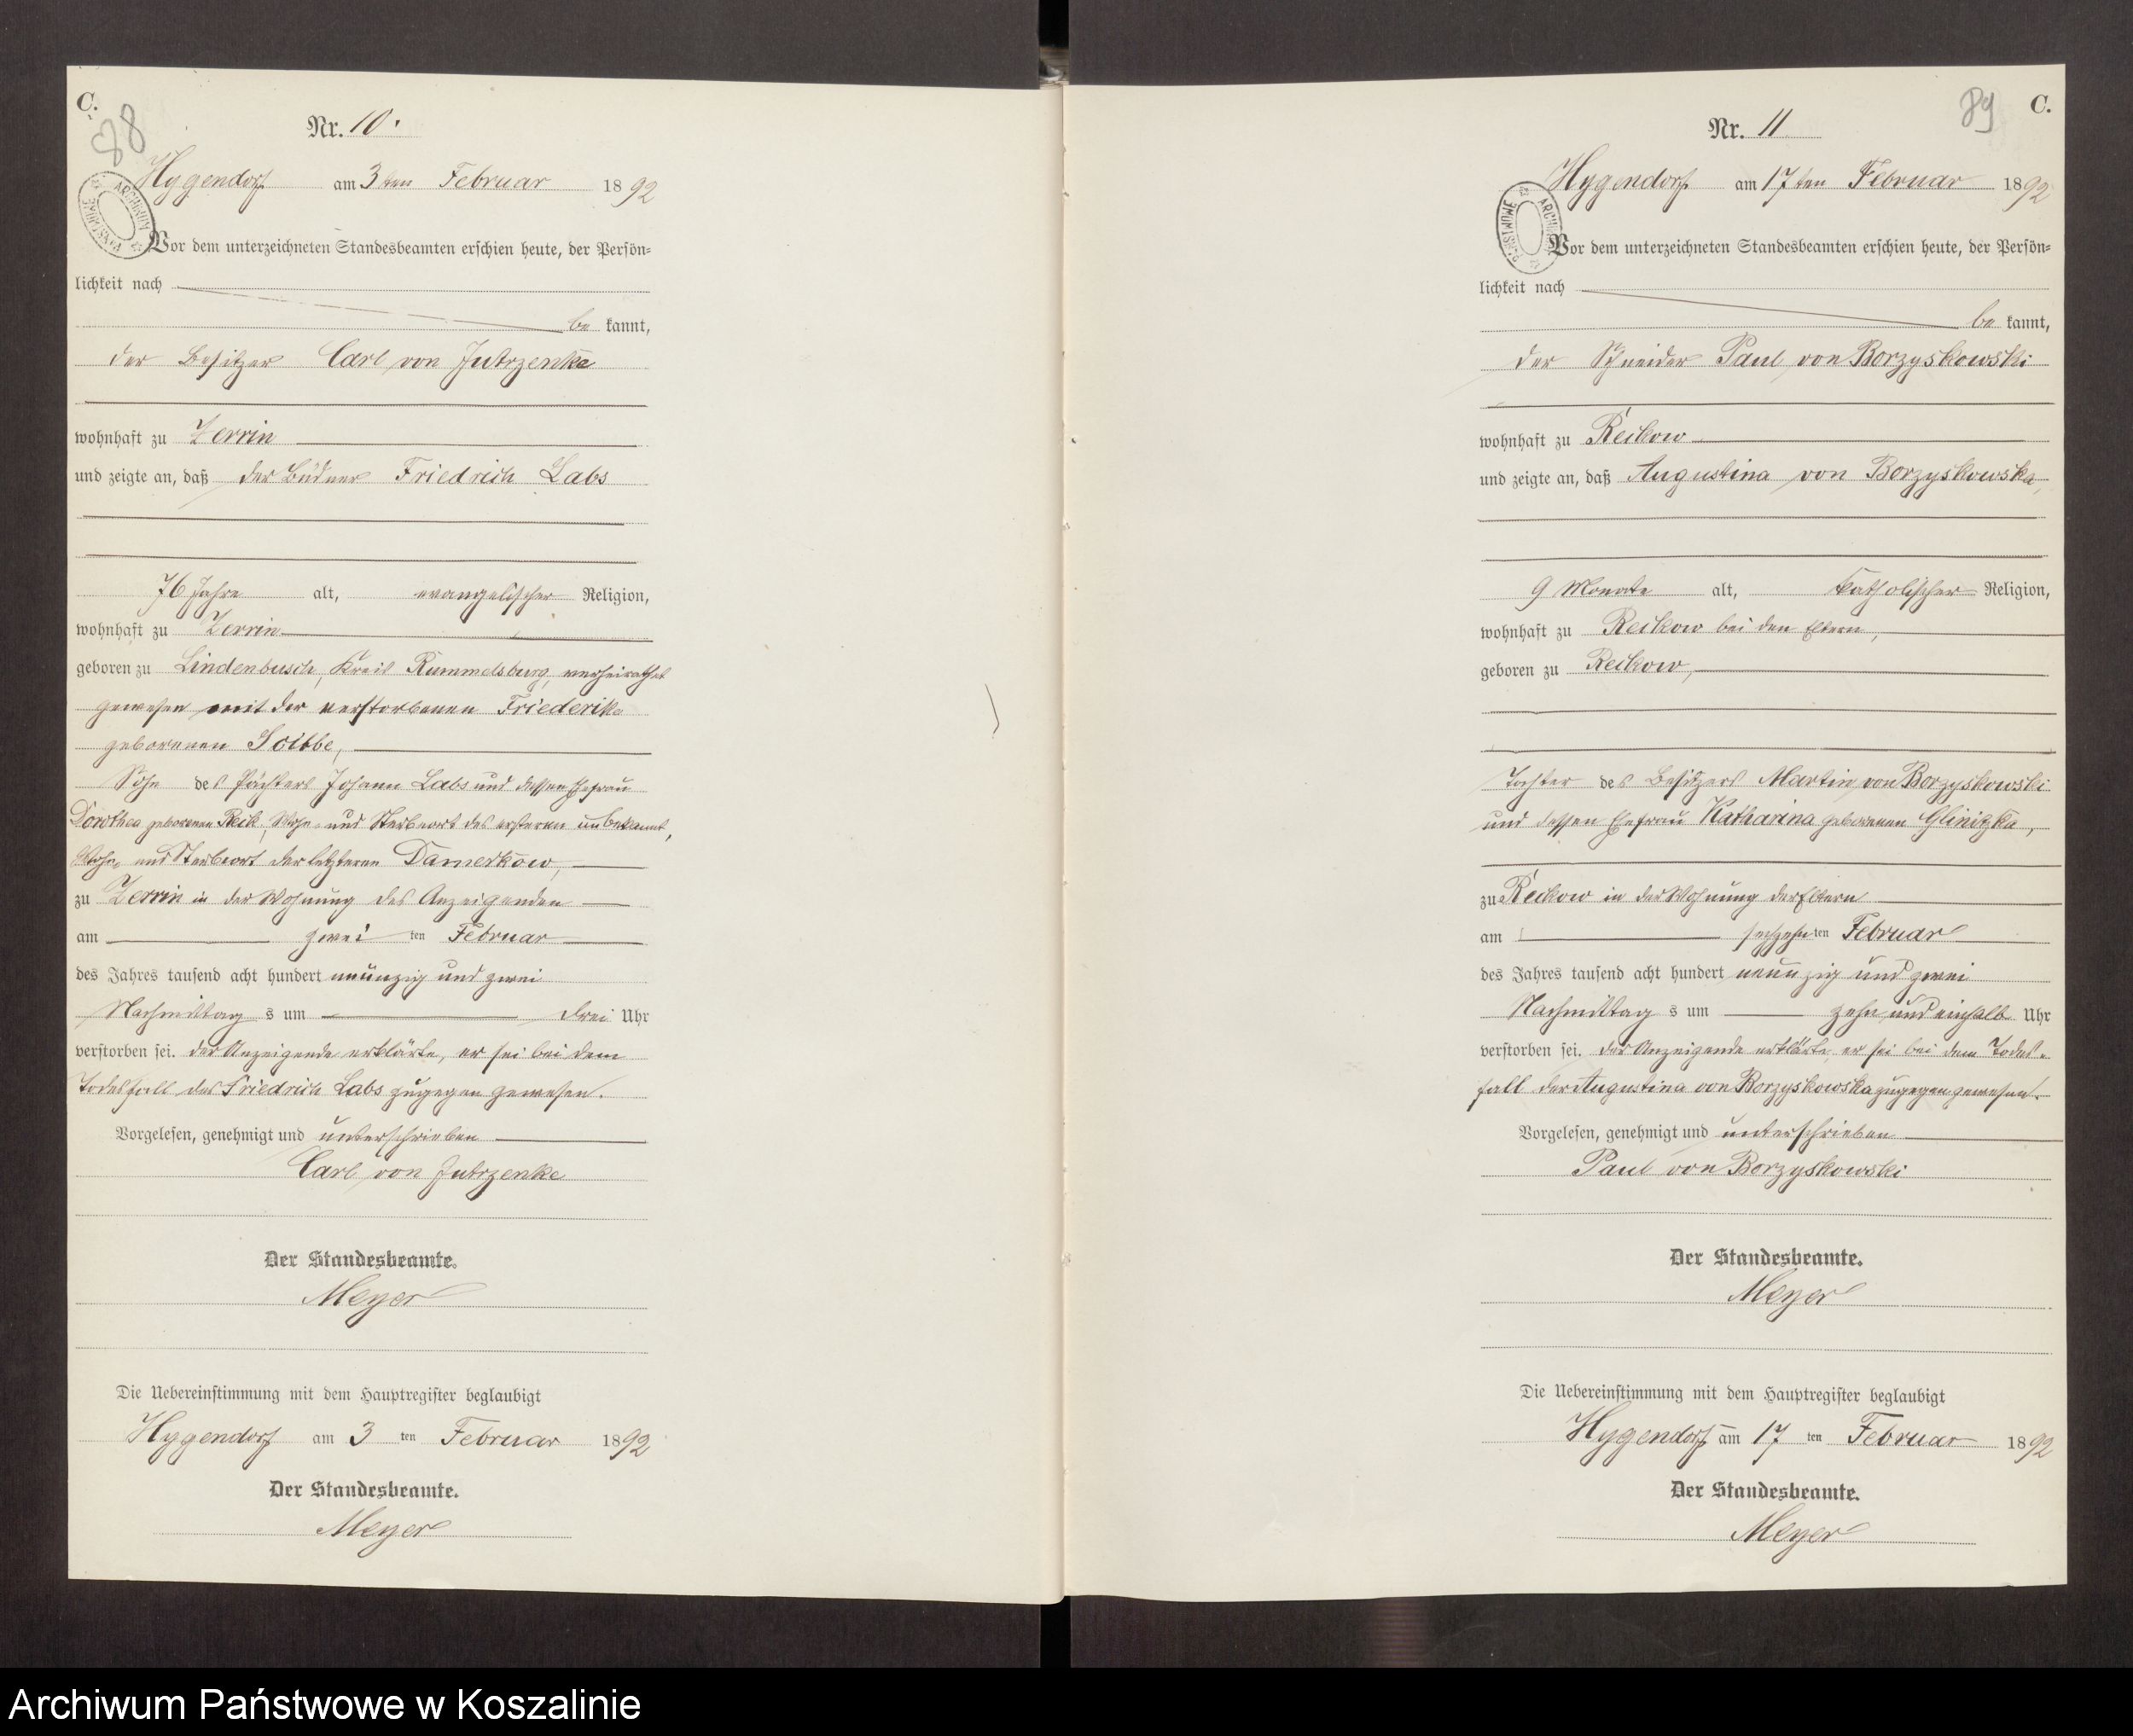 C.
88
Nr. 10.
Hygendorf am 3ten Februar 1892
ARCHIWUM PAŃSTWOWE
Vor dem unterzeichneten Standesbeamten erschien heute, der Persön-
lichkeit nach
be kannt,
der Besitzer Carl von Jutrzenka
wohnhaft zu Zerrin
und zeigte an, daß der Büdner Friedrich Labs
76 Jahre alt, evangelischer Religion,
wohnhaft zu Zerrin
geboren zu Lindenbusch, Kreis Rummelsburg, verheirathet
gewesen mit der verstorbenen Friederike
geborenen
Sohn des Pächters Johann Labs und dessen Ehefrau
Dorothea geborenen Reik, Wohn- und Sterbeort des ersteren unbekannt,
Wohn- und Sterbeort der letzteren Damerkow,
zu Zerrin in der Wohnung des Anzeigenden
am zwei ten Februar
des Jahres tausend acht hundert neunzig und zwei
Nachmittag s um drei Uhr
verstorben sei. der Anzeigende erklärte, er sei bei dem
Todesfall des Friedrich Labs zugegen gewesen.
Vorgelesen, genehmigt und unterschrieben
Carl von Jutrzenke
Der Standesbeamte.
Meyer
Die Uebereinstimmung mit dem Hauptregister beglaubigt
Hygendorf am 3 ten Februar 1892
Der Standesbeamte.
Meyer
89 C.
Nr. 11
Hygendorf am 17ten Februar 1892
Vor dem unterzeichneten Standesbeamten erschien heute, der Persön-
lichkeit nach
be kannt,
der Schneider Paul von Borzyskowski
wohnhaft zu Reckow
und zeigte an, daß Augustina von Borzyskowska,
9 Monate alt, katholischer Religion,
wohnhaft zu Reckow bei den Eltern,
geboren zu Reckow,
Tochter des Besitzers Martin von Borzyskowski
und dessen Ehefrau Katharina geborenen Glinitzka,
zu Reckow in der Wohnung der Eltern
am sechzehn ten Februar
des Jahres tausend acht hundert neunzig und zwei
Nachmittag s um zehn und einhalb Uhr
verstorben sei. der Anzeigende erklärte, er sei bei dem Todes-
fall der Augustina von Borzyskowska zugegen gewesen.
Vorgelesen, genehmigt und unterschrieben
Paul von Borzyskowski
Der Standesbeamte.
Meyer
Die Uebereinstimmung mit dem Hauptregister beglaubigt
Hygendorf am 17 ten Februar 1892
Der Standesbeamte.
Meyer
Archiwum Państwowe w Koszalinie